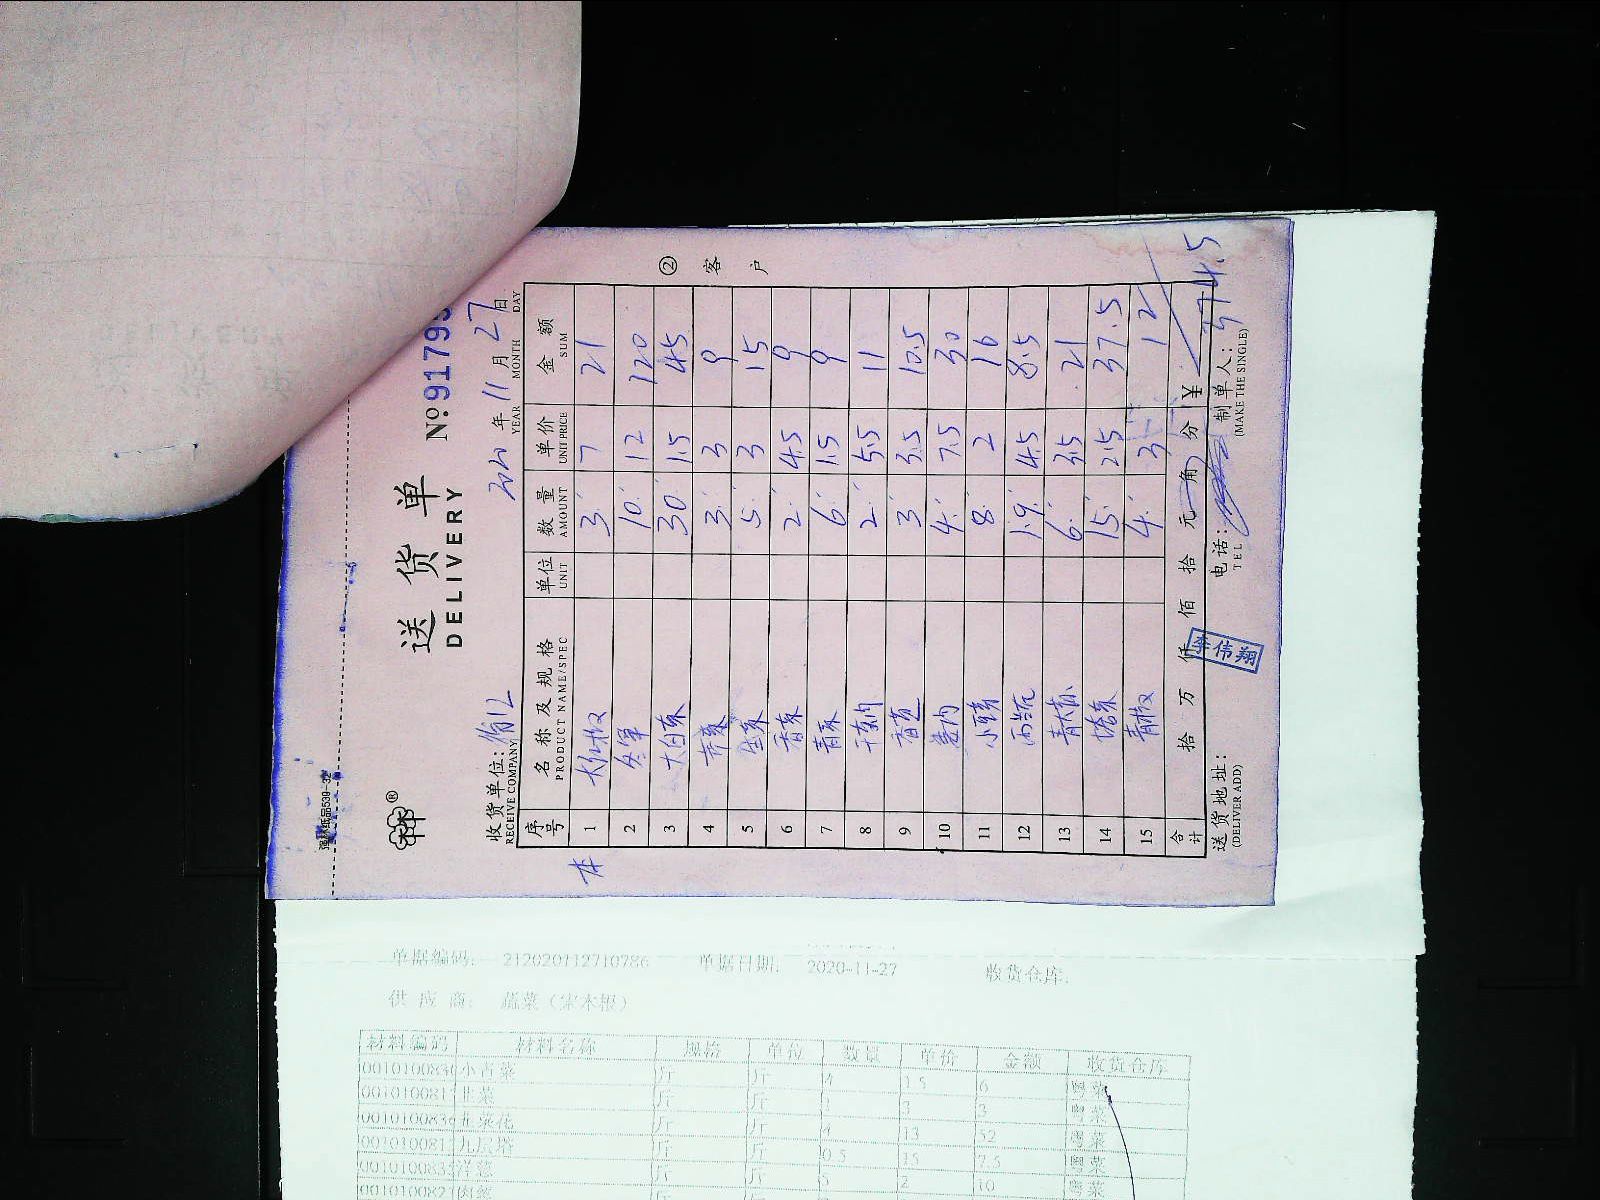 强林纸品539-32
送货单
DELIVERY
No 91795
收货单位:
RECEIVE COMPANY
2020 年 11 月 27 日
YEAR MONTH DAY
序号 名称及规格 单位 数量 单价 金额
PRODUCT NAME/SPEC UNIT AMOUNT UNIT PRICE SUM
1 大红椒 3 7 21
2 冬笋 10 12 120
3 大白菜 30 1.5 45
4 芹菜 3 3 9
5 生菜 5 3 15
6 香菜 2 4.5 9
7 青菜 6 1.5 9
8 2 5.5 11
9 香葱 3 3.5 10.5
10 4 7.5 30
11 8 2 16
12 西兰花 1.9 4.5 8.5
13 6 3.5 21
14 15 2.5 37.5
15 青椒 4 3 12
合计 拾 万 仟 佰 拾 元 角 分 ¥ 374.5
送货地址: 电话: 制单人:
(DELIVER ADD) TEL (MAKE THE SINGLE)
李伟翔
② 客户
单据编码: 212020112710786 单据日期: 2020-11-27 收货仓库:
供应商: 蔬菜(宋本根)
材料编码 材料名称 规格 单位 数量 单价 金额 收货仓库
小白菜 斤 斤 4 1.5 6 粤菜
韭菜 斤 斤 1 3 3 粤菜
韭菜花 斤 斤 4 13 52 粤菜
九层塔 斤 斤 0.5 15 7.5 粤菜
洋葱 斤 斤 5 2 10 粤菜